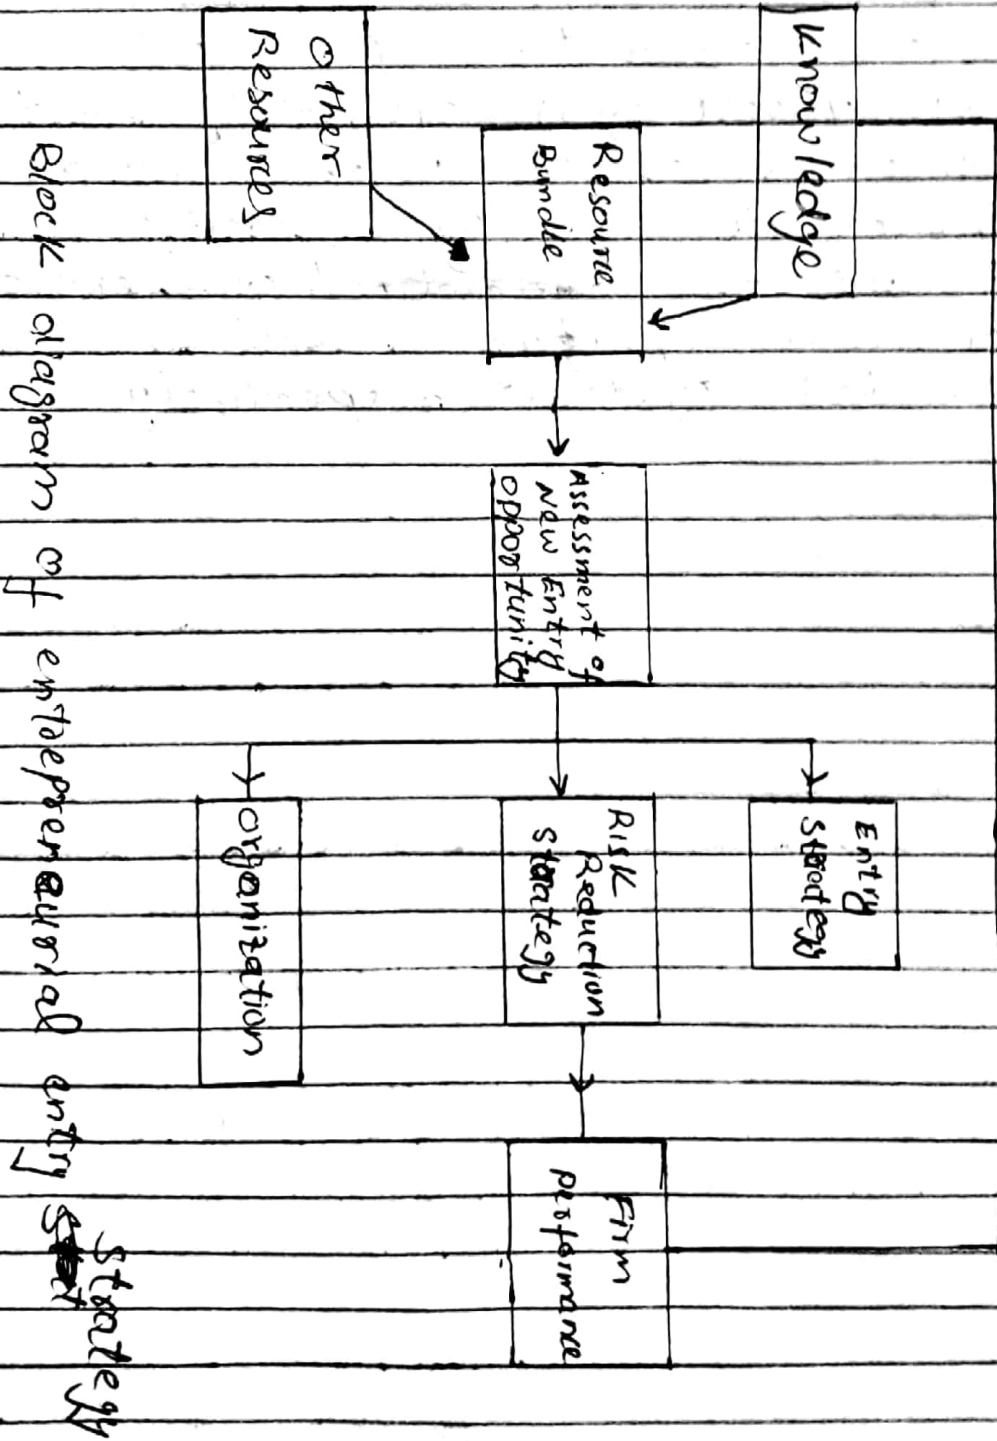 Knowledge
Other
Resources
Resource
Bundle
Assessment of
New Entry
opportunity
Entry
Strategy
Risk
Reduction
Strategy
organization
Firm
performance
Block diagram of enteeprenaurial entry
Strategy